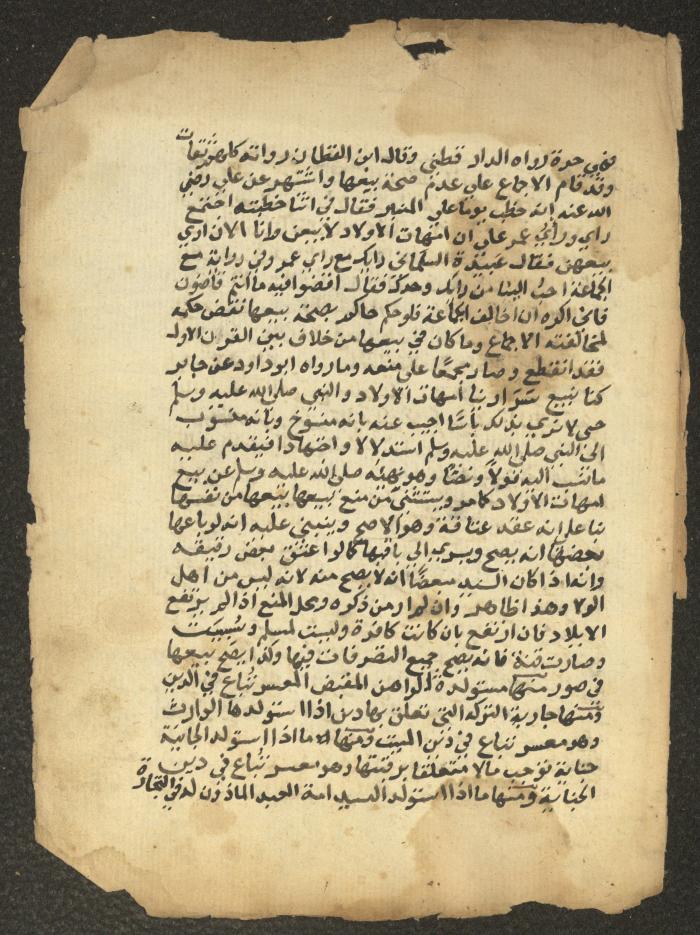 فهي حرة رواه الدار قطني وقال ابن القطان رواته كلهم ثقات
وقد قام الاجماع علي عدم صحة بيعها واشتهر عن علي رضي
الله عنه انه خطب يوما علي المنبر فقال في اثنا خطبته اجتمع
راي وراي عمر علي ان امهات الاولاد لا يبعن وانا الان اري
بيعهن فقال عبيدة السلماني رايك مع راي عمر وفي رواية مع
الجماعة احب الينا من رايك وحدك فقال اقضوا فيه ما انتم قاضون
فاني اكره ان اخالف الجماعة فلو حكم حاكم بصحة بيعها نقض حكمه
لمخالفته الاجماع وما كان في بيعها من خلاف بين القرن الاول
فقد انقطع وصار مجمعا علي منعه وما رواه ابو داود عن جابر
كنا نبيع سرارينا امهات الاولاد والنبي صلي الله عليه وسلم
حي لا نري بذلك باسا اجيب عنه بانه منسوخ وبانه منسوب
الي النبي صلي الله عليه وسلم استدلالا واجتهادا فيقدم عليه
ما نسب اليه قولا ونصا وهو نهيه صلي الله عليه وسلم عن بيع
امهات الاولاد كما مر ويستثني من منع بيعها بيعها من نفسها
بنا علي انه عقد عتاقة وهو الاصح وينبني عليه انه لو باعها
بعضها انه يصح ويسري الي باقيها كما لو اعتق بعض رقيقه
وانه اذا كان السيد مبعضا انه لا يصح منه لانه ليس من اهل
الولا وهذا ظاهر وان لم ار من ذكره ومحل المنع اذا لم يرتفع
الايلاد فان ارتفع بان كانت كافرة وليست لمسلم وسبيت
وصارت قنة فانه يصح جميع التصرفات فيها وكذا يصح بيعها
في صور منها مستولدة الراهن المقبض المعسر تباع في الدين
ومنها جارية التركة التي تعلق بها دين اذا استولدها الوارث
وهو معسر تباع في دين الميت ومنها ما اذا استولد الجانية
جناية توجب مالا متعلقا برقبتها وهو معسر تباع في دين
الجناية ومنها ما اذا استولد السيد امة العبد الماذون له في التجارة